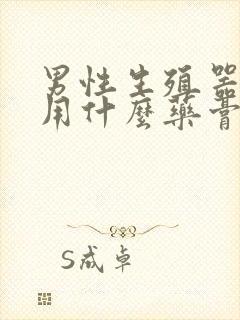 男性生殖器
用什麼藥膏
S成卓